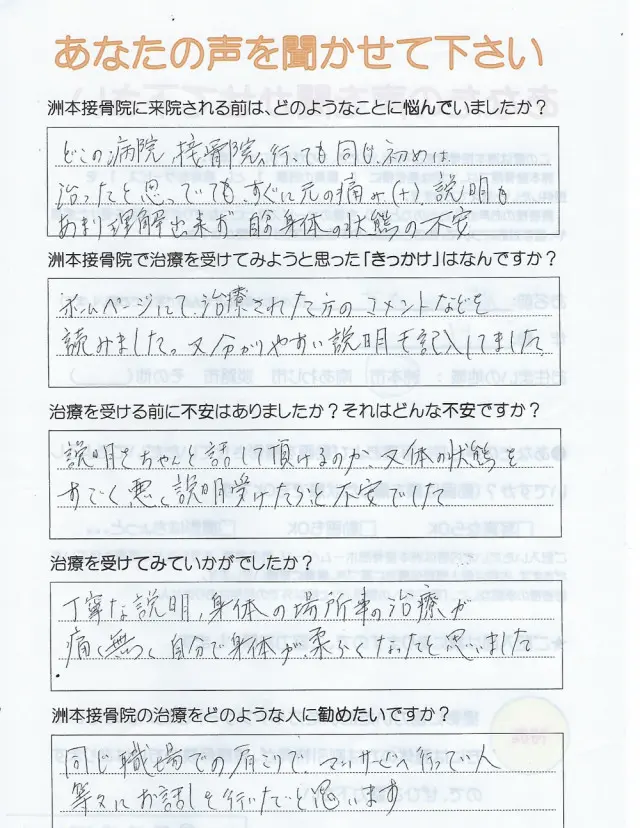 あなたの声を聞かせて下さい
洲本接骨院に来院される前は、どのようなことに悩んでいましたか？
どこの病院、接骨院へ行っても同じ、初めは
治ったと思っていても、すぐに元の痛み(+)説明も
あまり理解出来ず、自分身体の状態の不安
洲本接骨院で治療を受けてみようと思った「きっかけ」はなんですか？
ホームページにて、治療された方のコメントなどを
読みました。又分かりやすい説明も記入してました
治療を受ける前に不安はありましたか？それはどんな不安ですか？
説明をちゃんと話して頂けるのか、又体の状態を
すごく悪く説明受けたらと不安でした
治療を受けてみていかがでしたか？
丁寧な説明、身体の場所事の治療が
痛く無く自分で身体が柔らくなったと思いました
洲本接骨院の治療をどのような人に勧めたいですか？
同じ職場での肩こりで、マッサージへ行っている人
等々にお話しを行いたいと思います